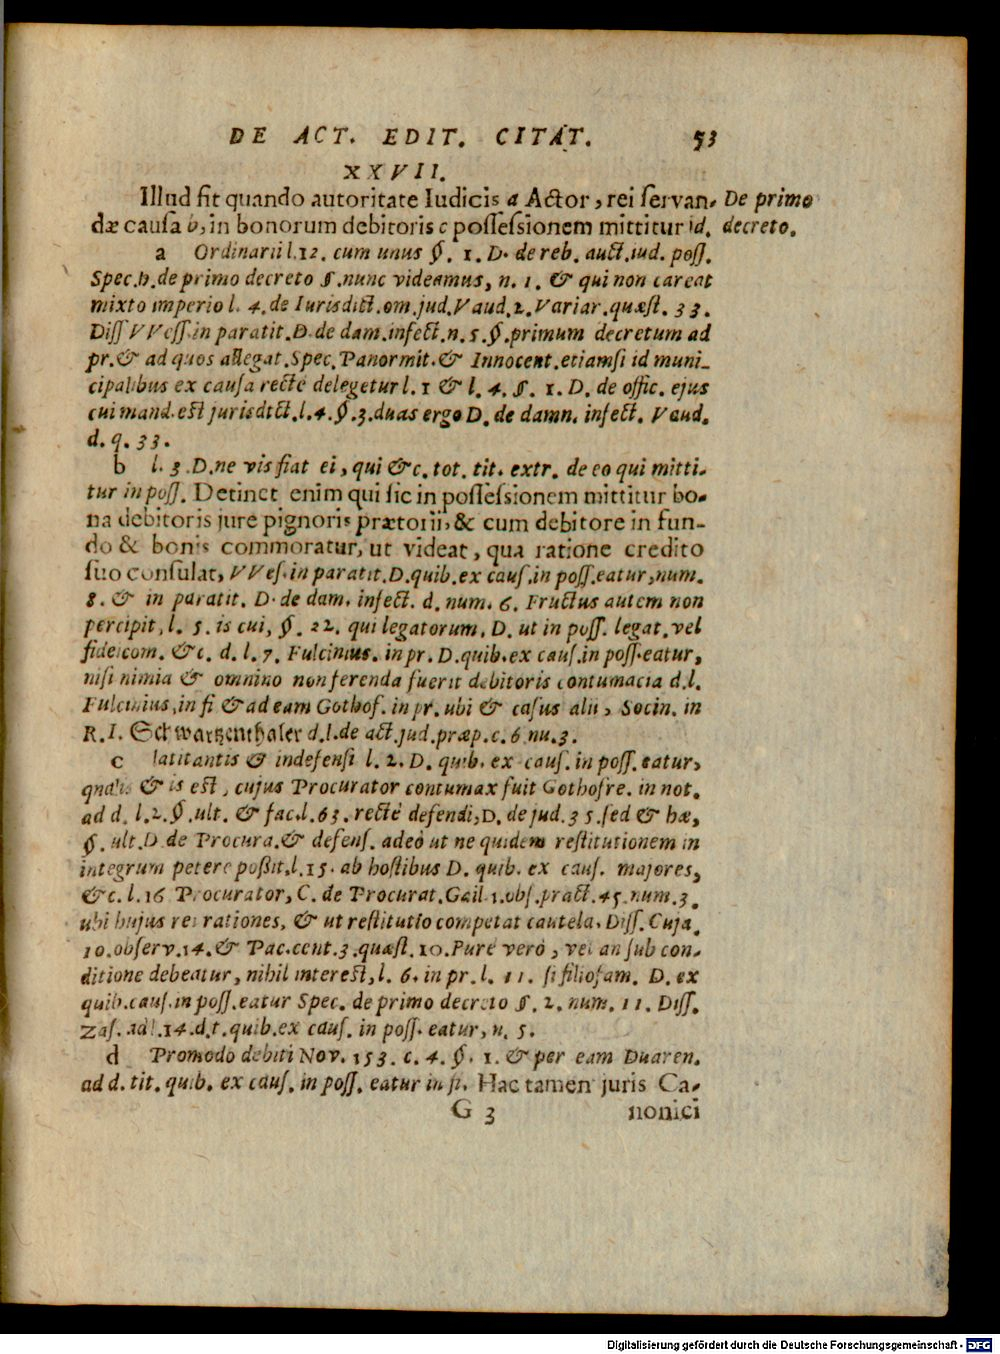 DE ACT. EDIT. CITAT. 53
XXVII.
Illud fit quando autoritate Iudicis a Actor, rei ſervan- De primo
dæ cauſa b, in bonorum debitoris c poſſeſsionem mittitur d. decreto.
a Ordinarii l. 12. cum unus §. 1. D. de reb. auct. jud. poſſ.
Spec. b. de primo decreto §. nunc videamus, n. 1. & qui non careat
mixto imperio l. 4. de Iurisdict. om. jud. Vaud. 2. Variar. quæſt. 33.
Diſſ VVeſſ. in paratit. D. de dam. infect. n. 5. §. primum decretum ad
pr. & ad quos allegat. Spec. Panormit. & Innocent. etiamſi id muni-
cipalibus ex cauſa rectè delegetur l. 1 & l. 4. §. 1. D. de offic. ejus
cui mand. eſt jurisdict. l. 4. §. 3. duas ergo D. de damn. infect. Vaud.
d. q. 33.
b l. 3. D. ne vis fiat ei, qui &c. tot. tit. extr. de eo qui mitti-
tur in poſſ. Detinet enim qui ſic in poſſeſsionem mittitur bo-
na debitoris jure pignoris prætorii, & cum debitore in fun-
do & bonis commoratur, ut videat, qua ratione credito
ſuo conſulat, VVeſ. in paratit. D. quib. ex cauſ. in poſſ. eatur, num.
8. & in paratit. D. de dam. infect. d. num. 6. Fructus autem non
percipit, l. 5. is cui, §. 22. qui legatorum, D. ut in poſſ. legat. vel
fideicom. &c. d. l. 7. Fulcinius. in pr. D. quib. ex cauſ. in poſſ. eatur,
niſi nimia & omnino non ferenda fuerit debitoris contumacia d. l.
Fulcinius, in fi & ad eam Gothof. in pr. ubi & caſus alii, Socin. in
R. I. Schwartzenthaler d. l. de act. jud. præp. c. 6 nu. 3.
c latitantis & indefenſi l. 2. D. quib. ex cauſ. in poſſ. eatur,
qualis & is eſt, cujus Procurator contumax fuit Gothofre. in not.
ad d. l. 2. §. ult. & fac. l. 63. rectè defendi, D. de jud. 35. ſed & hæ,
§. ult. D de Procura. & defenſ. adeò ut ne quidem reſtitutionem in
integrum petere poßit, l. 15. ab hoſtibus D. quib. ex cauſ. majores,
&c. l. 16 Procurator, C. de Procurat. Gail 1. obſ. pract. 45. num. 3.
ubi hujus rei rationes, & ut reſtitutio competat cautela. Diſſ. Cuja.
10. obſerv. 14. & Pac. cent. 3. quæſt. 10. Purè verò, vel an ſub con-
ditione debeatur, nihil intereſt, l. 6. in pr. l. 11. ſi filiofam. D. ex
quib. cauſ. in poſſ. eatur Spec. de primo decreto §. 2. num. 11. Diſſ.
Zaſ. ad l. 14. d. t. quib. ex cauſ. in poſſ. eatur, n. 5.
d Promodo debiti Nov. 153. c. 4. §. 1. & per eam Duaren.
ad d. tit. quib. ex cauſ. in poſſ. eatur in fi. Hac tamen juris Ca-
G 3 nonici
Digitalisierung gefördert durch die Deutsche Forschungsgemeinschaft - DFG